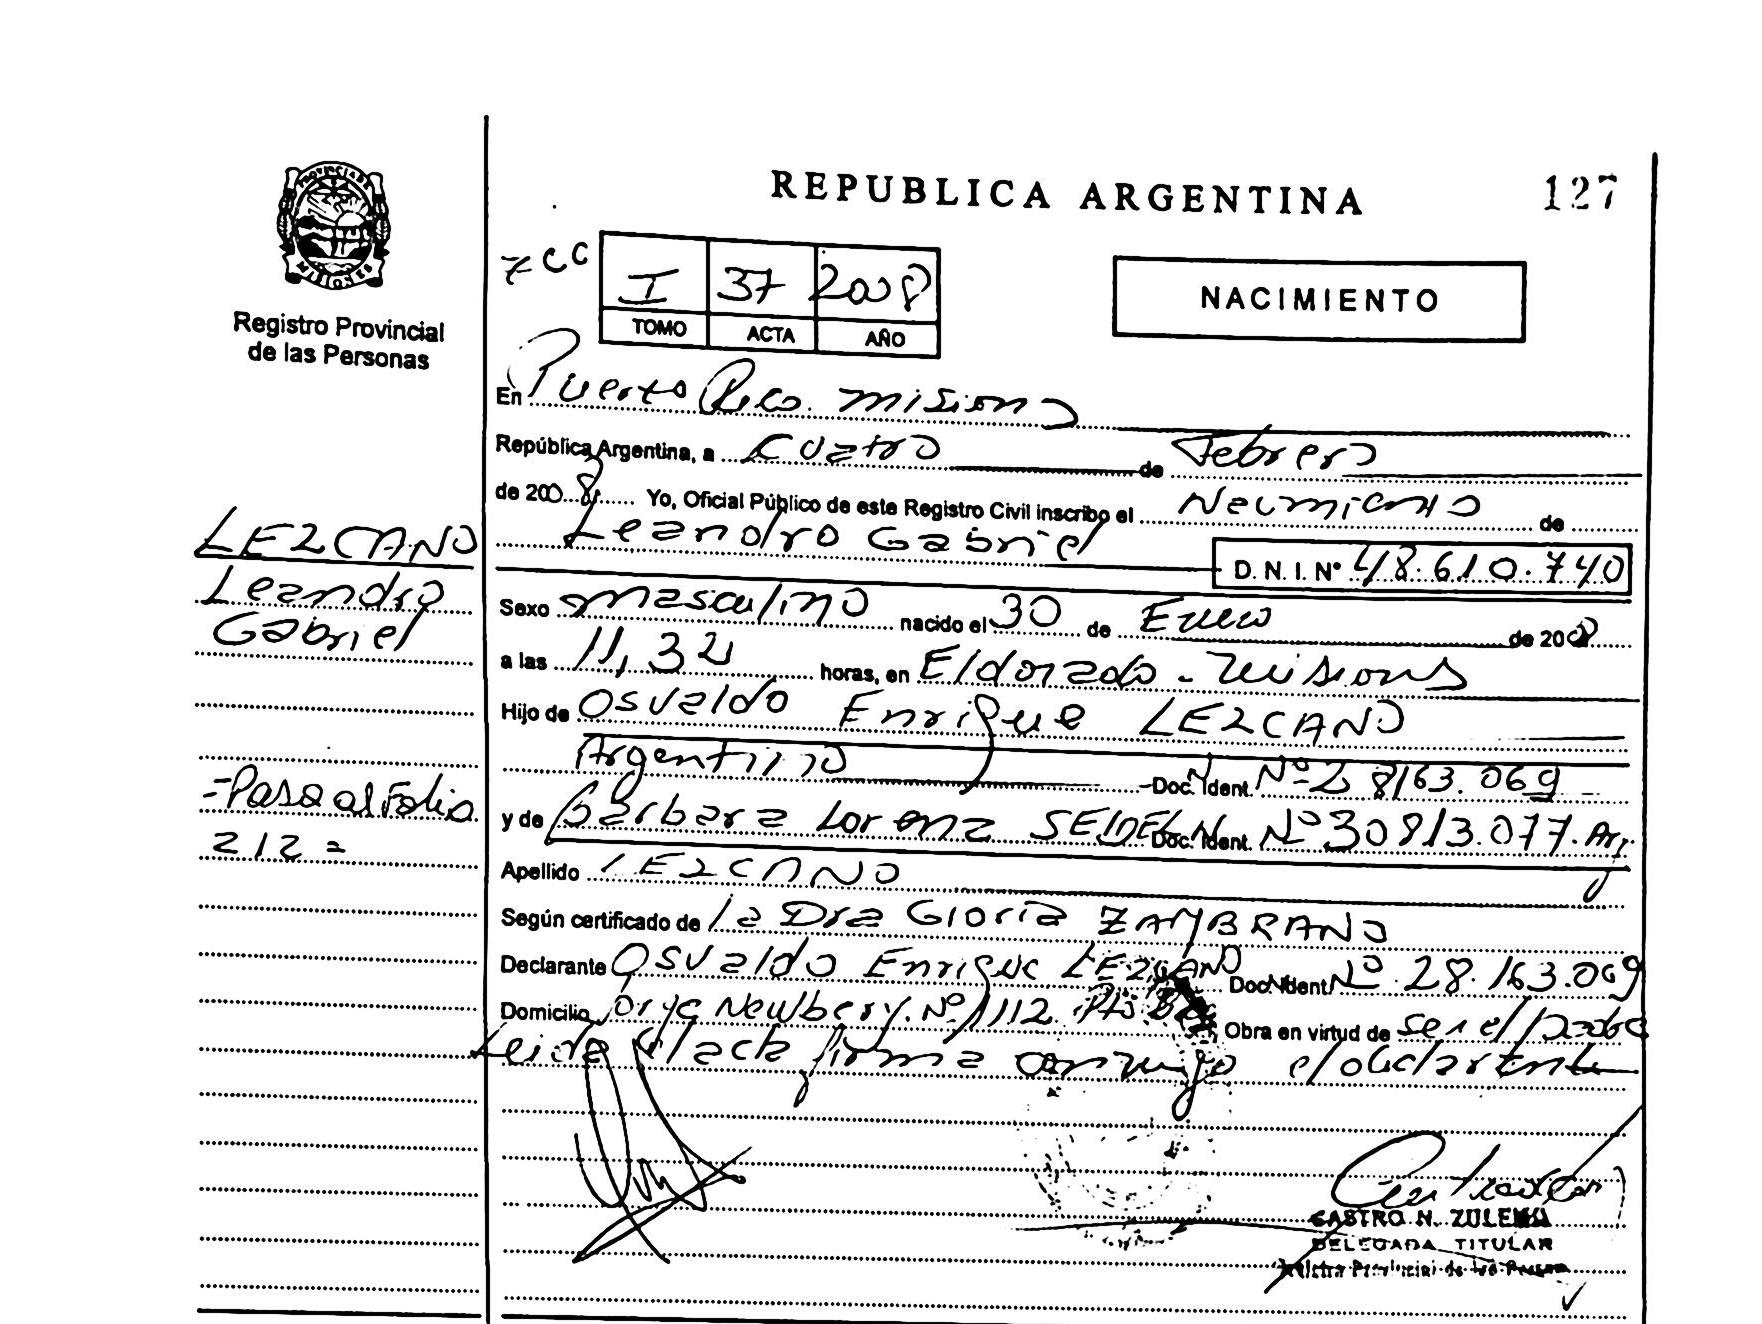 REPUBLICA ARGENTINA
127
PROVINCIA DE
MISIONES
Registro Provincial
de las Personas
I 37 2008
TOMO ACTA AÑO
NACIMIENTO
En Puerto Rico. Misiones
República Argentina, a Cuatro de Febrero
de 2008 Yo, Oficial Público de este Registro Civil inscribo el Nacimiento de
Leandro Gabriel D. N. I. Nº 48.610.740
LEZCANO
Leandro
Gabriel
Sexo masculino nacido el 30 de Enero de 2008
a las 11,32 horas, en Eldorado - Misiones
Hijo de Osvaldo Enrique LEZCANO
Argentino Doc. Ident. Nº 28163.069
=Pasa al Folio
212=
y de Bárbara Lorena Doc. Ident. Nº 30813.077. Arg.
Apellido LEZCANO
Según certificado de la Dra Gloria ZAMBRANO
Declarante Osvaldo Enrique LEZCANO Doc. Ident. Nº 28.163.069
Domicilio Jorge Newbery. Nº 1112 Pto Obra en virtud de ser el padre
Leida el acta firma conmigo el declarante
CASTRO N. ZULEMA
DELEGADA TITULAR
Registro Provincial de las Personas